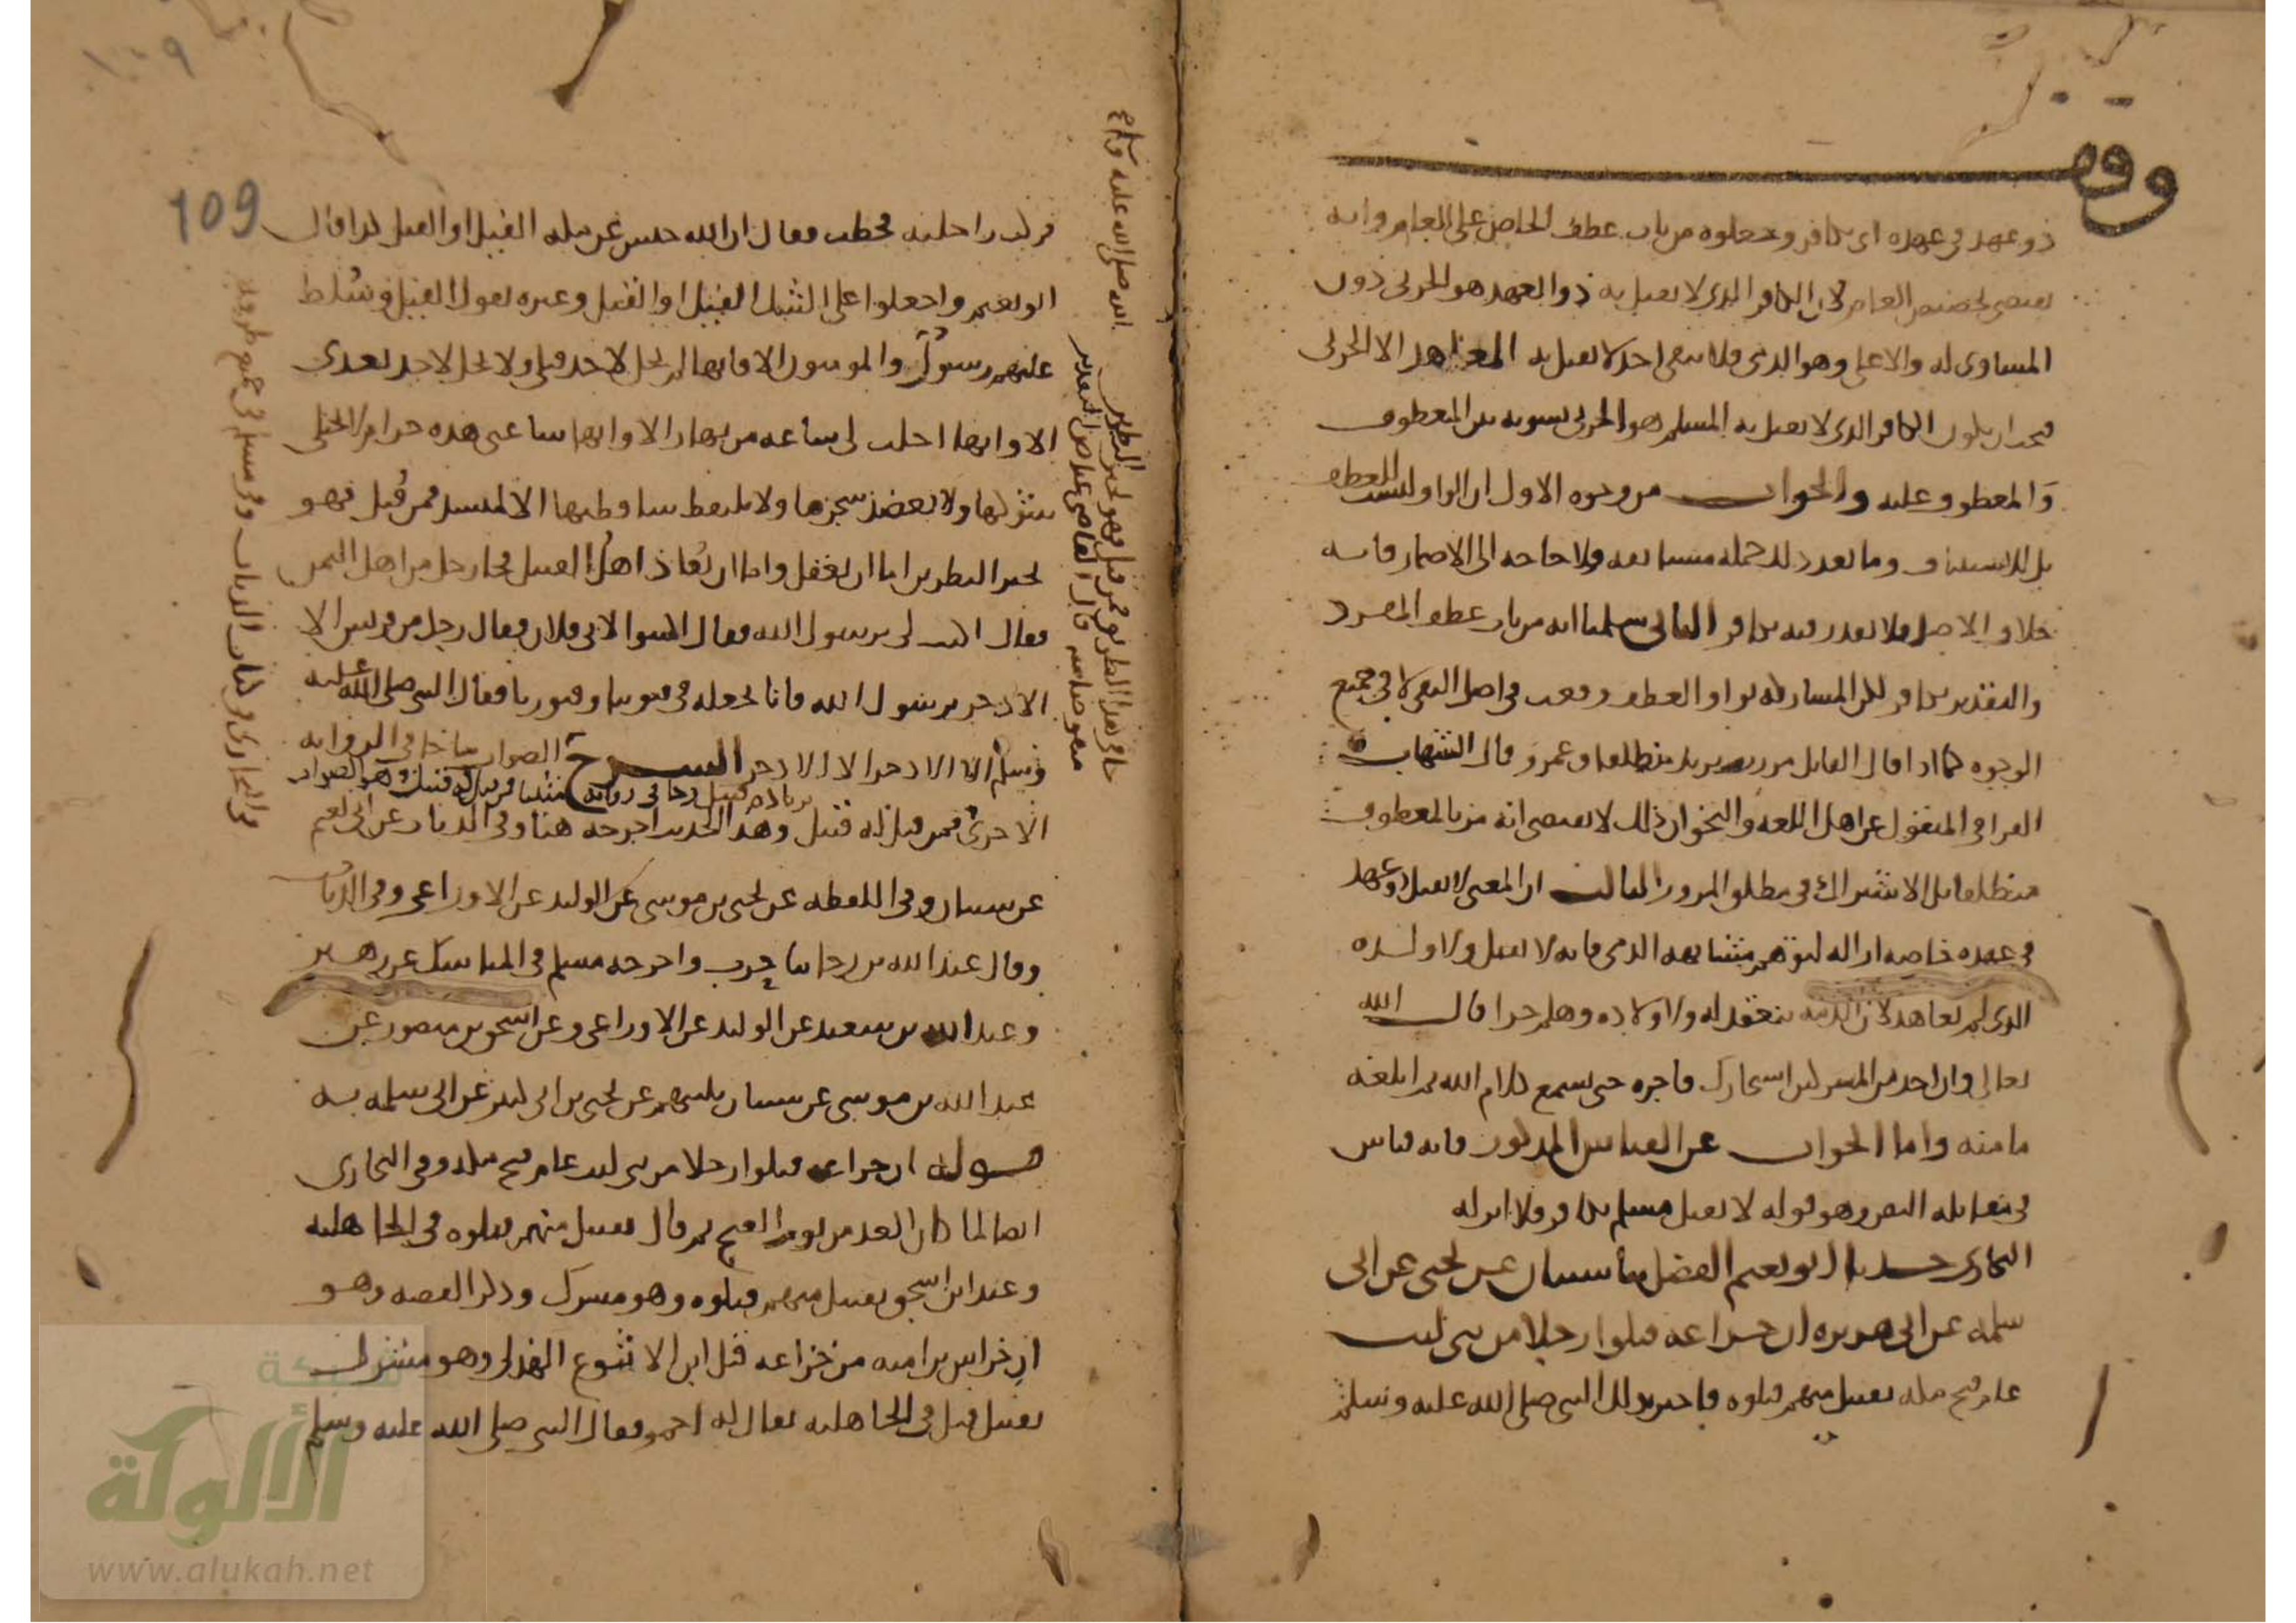 وقف
ذو عهد في عهده اي بكافر وجعلوه من باب عطف الخاص على العام وانه
يقتضي تخصيص العام لان الكافر الذي لا يقتل به ذو العهد هو الحربي دون
المساوي له والاعلى وهو الذمي فلا يبقى احد لا يقتل به المعاهد الا الحربي
فيجب ان يكون الكافر الذي لا يقتل به المسلم هو الحربي تسوية بين المعطوف
والمعطوف عليه والجواب من وجوه الاول ان الواو ليست للعطف
بل للاستيناف وما بعد ذلك جملة مستانفة ولا حاجة الى الاضمار فانه
خلاف الاصل فلا يقدر فيه بكافر الثاني سلمنا انه من باب عطف المفرد
والتقدير بكافر لكن المشاركة بواو العطف وقعت في اصل النفي لا في جميع
الوجوه كما اذا قال القايل مررت بزيد منطلقا وعمرو قال الشهاب
القرافي المنقول عن اهل اللغة والنحو ان ذلك لا يقتضي انه مر بالمعطوف
منطلقا بل الاشتراك في مطلق المرور الثالث ان المعنى لا يقتل ذو عهد
في عهده خاصة ازالة لتوهم مشابهة الذمي فانه لا يقتل ولا ولده
الذي لم يعاهد لان الذمة تنعقد له ولاولاده وهلم جرا قال الله
تعالى وان احد من المشركين استجارك فاجره حتى يسمع كلام الله ثم ابلغه
مامنه واما الجواب عن القياس المذكور فانه قياس
في مقابلة النص وهو قوله لا يقتل مسلم بكافر فلا اثر له
البخاري حدثنا ابو نعيم الفضل ثنا شيبان عن يحيى عن ابي
سلمة عن ابي هريرة ان خزاعة قتلوا رجلا من بني ليث
عام فتح مكة بقتيل منهم قتلوه فاخبر بذلك النبي صلى الله عليه وسلم
109
فركب راحلته فخطب فقال ان الله حبس عن مكة القتيل او الفيل كذا قال
ابو نعيم واجعلوا على الشك الفيل او القتل وغيره يقول الفيل وسلط
عليهم رسول الله والمومنون الا فانها لم تحل لاحد قبلي ولا تحل لاحد بعدي
الا وانها احلت لي ساعة من نهار الا وانها ساعتي هذه حرام لا يختلى
شوكها ولا يعضد شجرها ولا يلتقط ساقطتها الا لمنشد فمن قتل فهو
بخير النظرين اما ان يعقل واما ان يقاد اهل القتيل فجا رجل من اهل اليمن
فقال اكتب لي يرسول الله فقال اكتبوا لابي فلان فقال رجل من قريش الا
الاذخر يرسول الله فانا نجعله في بيوتنا وقبورنا فقال النبي صلى الله عليه
وسلم الا الاذخر الا الاذخر الشرح الصواب ما جا في الرواية
الاخرى فمن قتل له قتيل وهذا الحديث اخرجه هنا وفي الديات عن ابي نعيم
عن شيبان وفي اللقطة عن يحيى بن موسى عن الوليد عن الاوزاعي وفي الديات
وقال عبد الله بن رجا ثنا حرب واخرجه مسلم في المناسك عن زهير
وعبد الله بن سعيد عن الوليد عن الاوزاعي وعن اسحق بن منصور عن
عبد الله بن موسى عن شيبان ثلثتهم عن يحيى بن ابي كثير عن ابي سلمة به
قوله ان خزاعة قتلوا رجلا من بني ليث عام فتح مكة وفي البخاري
ايضا لما كان الغد من يوم الفتح ثم قال بقتيل منهم قتلوه في الجاهلية
وعند ابن اسحق بقتيل منهم قتلوه وهو مشرك وذكر القصة وهو
ان خراش بن امية من خزاعة قتل ابن الاثوع الهذلي وهو مشرك
بقتيل قتل في الجاهلية يقال له احمر فقال النبي صلى الله عليه وسلم
شبكة
الألوكة
www.alukah.net